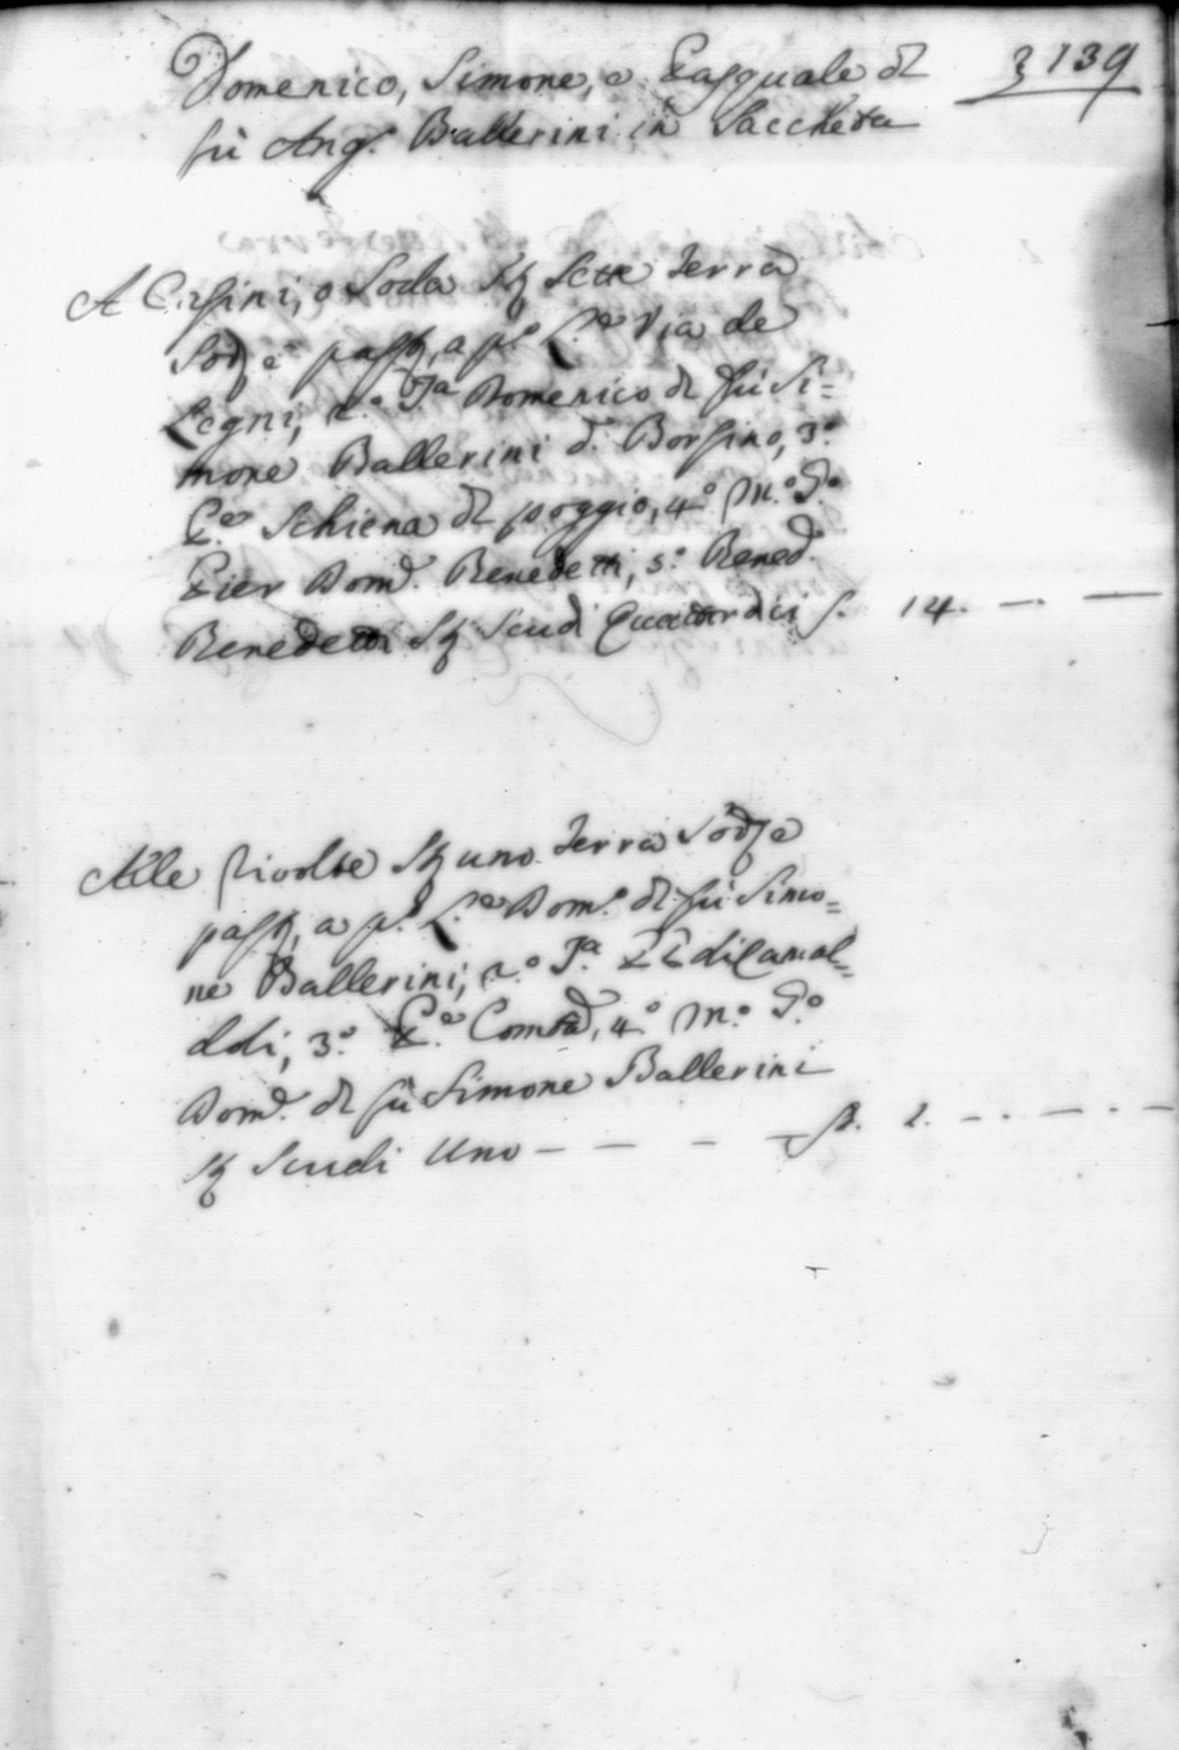 Domenico, Simone, e Pasquale di 3139
fù Ang.º Ballerini in Saccheta
A Casini, o Soda St.ª Sette terra
Sod.ª e past.ª, a p.º L.º Via de
Legni, 2.º J.ª Domenico di fù Si=
mone Ballerini d.º Borsino, 3.º
P.º Schiena di poggio, 4.º M.º G.º
Pier Dom.º Benedetti, 5.º Bened.º
Benedetti St.ª Scudi Quattordici S. 14. —. —
Alle Rivolte St.ª uno terra sod.ª e
past.ª, a p.º L.º Dom.º di fù Simo=
ne Ballerini, 2.º J.ª PP di Camal=
doli, 3.º P.º Comtà, 4.º M.º G.º
Dom.º di fù Simone Ballerini
St.ª Scudi Uno — — — — S. 1. —. —. —